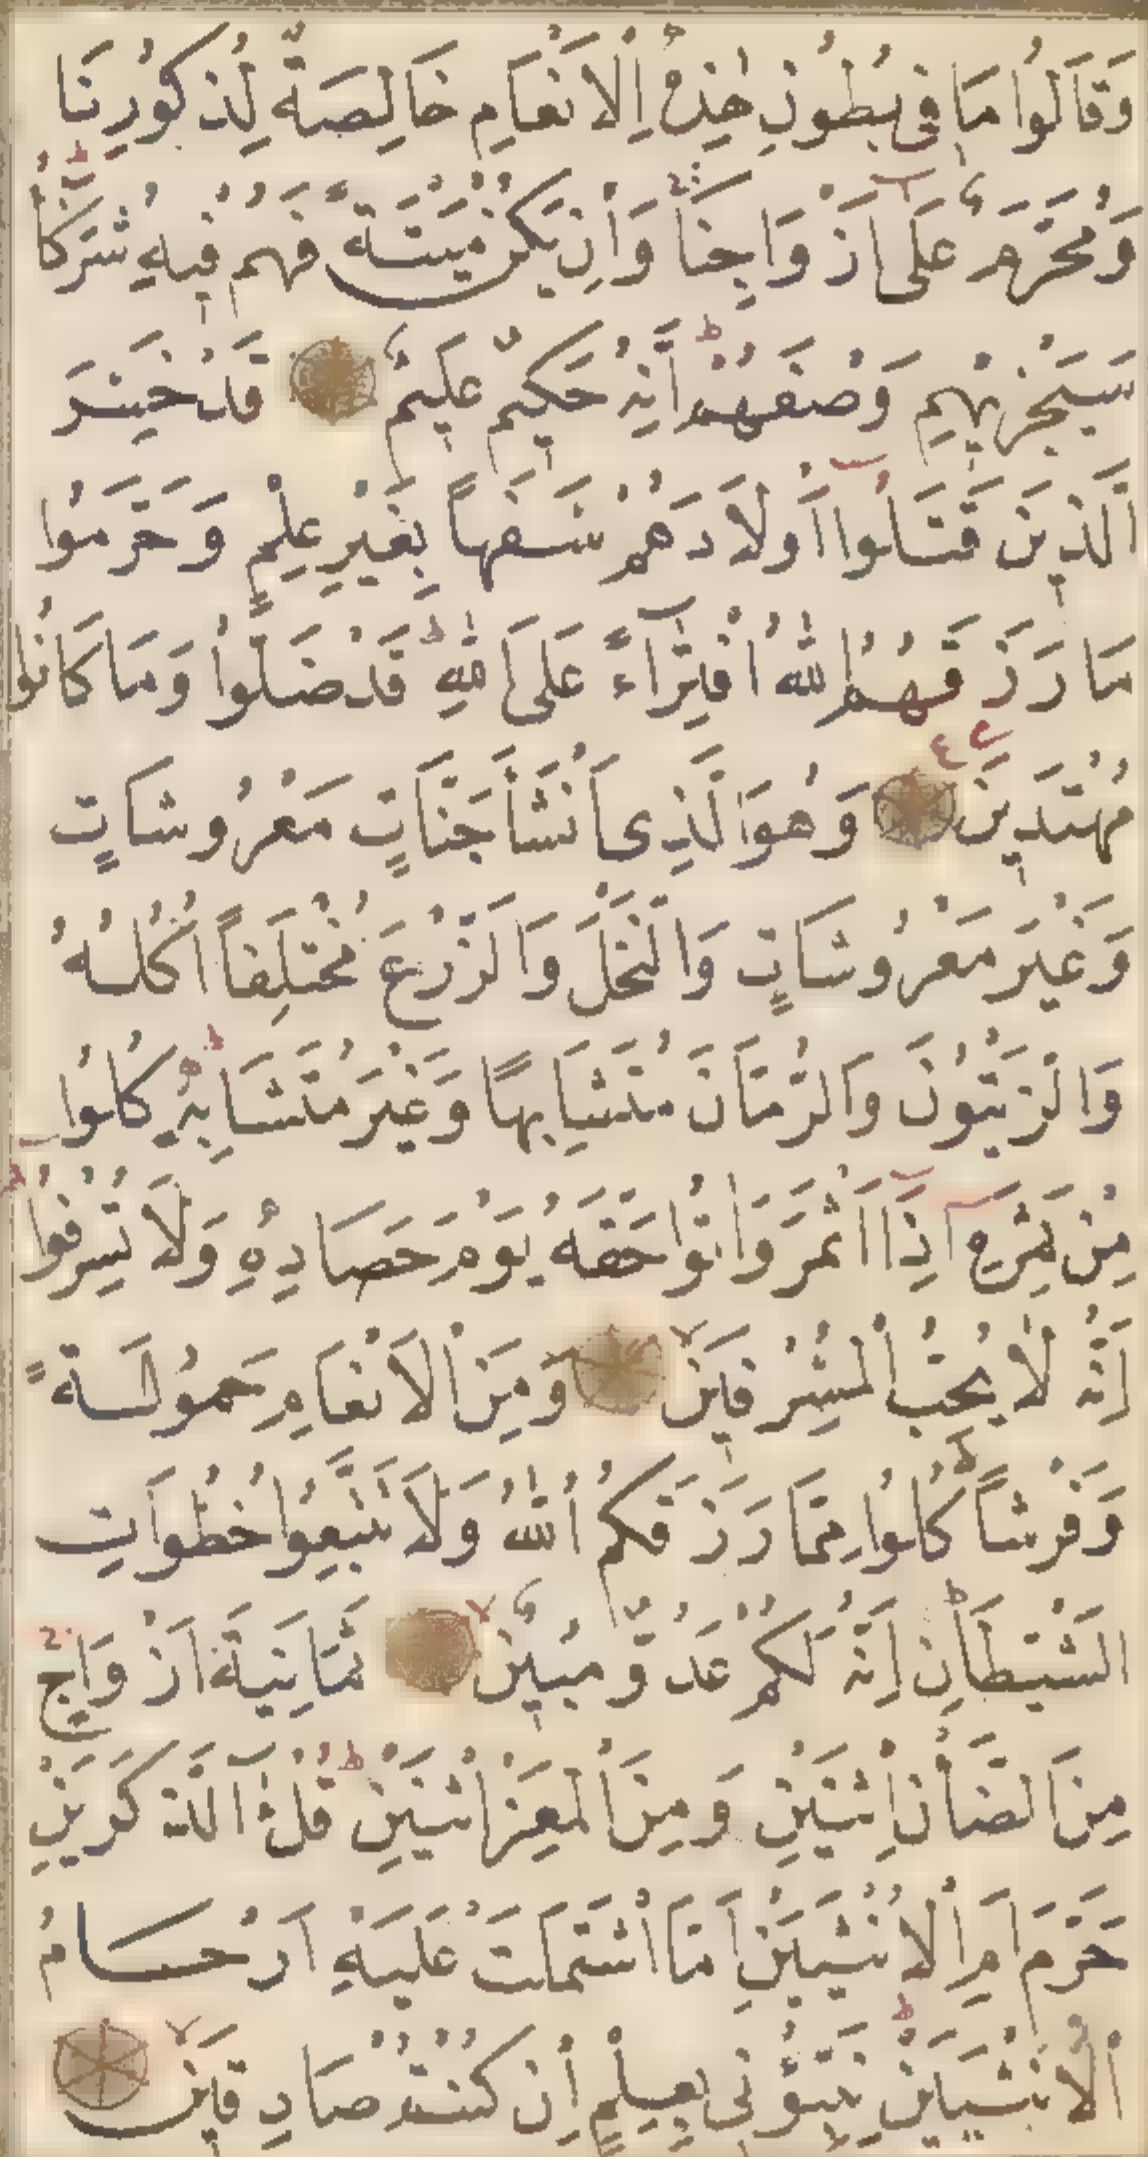 وَقَالُوا مَا فِي بُطُونِ هٰذِهِ الْاَنْعَامِ خَالِصَةٌ لِذُكُورِنَا
وَمُحَرَّمٌ عَلٰى اَزْوَاجِنَا وَاِنْ يَكُنْ مَيْتَةً فَهُمْ فِيهِ شُرَكَاءُ
سَيَجْزِيهِمْ وَصْفَهُمْ اِنَّهُ حَكِيمٌ عَلِيمٌ قَدْ خَسِرَ
الَّذِينَ قَتَلُوا اَوْلَادَهُمْ سَفَهاً بِغَيْرِ عِلْمٍ وَحَرَّمُوا
مَا رَزَقَهُمُ اللهُ افْتِرَاءً عَلَى اللهِ قَدْ ضَلُّوا وَمَا كَانُوا
مُهْتَدِينَ ع وَهُوَ الَّذِى اَنْشَأَ جَنَّاتٍ مَعْرُوشَاتٍ
وَغَيْرَ مَعْرُوشَاتٍ وَالنَّخْلَ وَالزَّرْعَ مُخْتَلِفاً اُكُلُهُ
وَالزَّيْتُونَ وَالرُّمَّانَ مُتَشَابِهًا وَغَيْرَ مُتَشَابِهٍ كُلُوا
مِنْ ثَمَرِهِ اِذَا اَثْمَرَ وَاٰتُوا حَقَّهُ يَوْمَ حَصَادِهِ وَلَا تُسْرِفُوا
اِنَّهُ لَا يُحِبُّ الْمُسْرِفِينَ وَمِنَ الْاَنْعَامِ حَمُولَةً
وَفَرْشاً كُلُوا مِمَّا رَزَقَكُمُ اللهُ وَلَا تَتَّبِعُوا خُطُوَاتِ
الشَّيْطَانِ اِنَّهُ لَكُمْ عَدُوٌّ مُبِينٌ ثَمَانِيَةَ اَزْوَاجٍ
مِنَ الضَّأْنِ اثْنَيْنِ وَمِنَ الْمَعْزِ اثْنَيْنِ قُلْ آلذَّكَرَيْنِ
حَرَّمَ اَمِ الْاُنْثَيَيْنِ اَمَّا اشْتَمَلَتْ عَلَيْهِ اَرْحَامُ
الْاُنْثَيَيْنِ نَبِّؤُنِى بِعِلْمٍ اِنْ كُنْتُمْ صَادِقِينَ